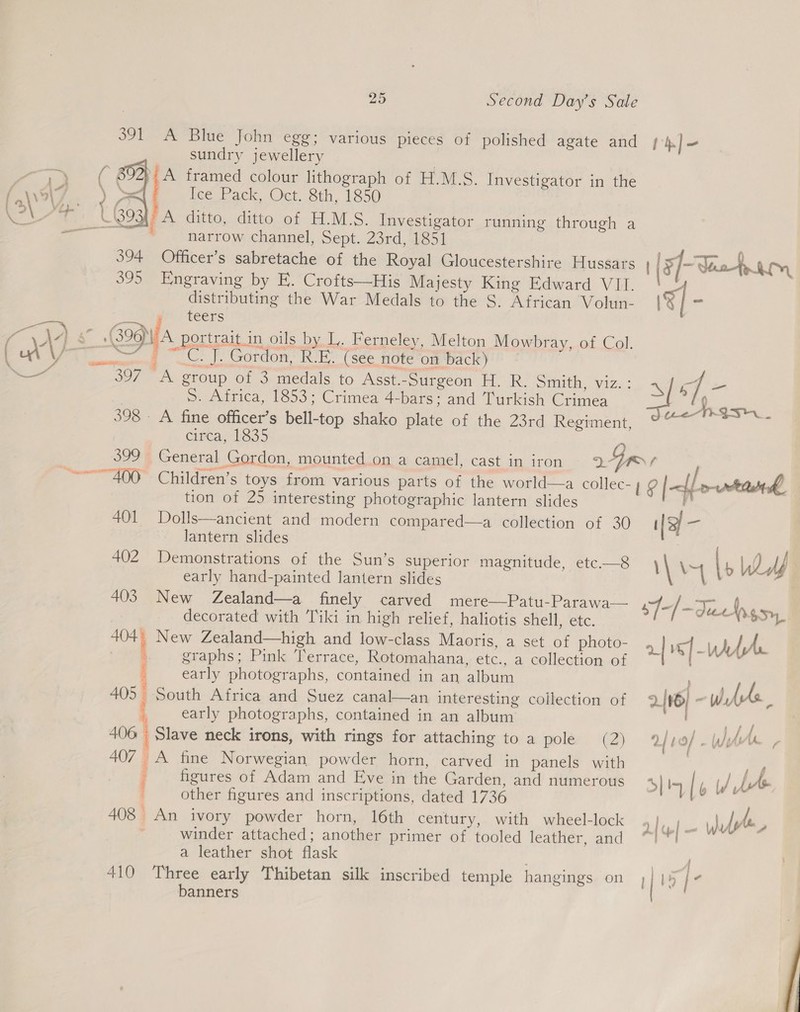 25 Second Day's Sale
391 A Blue John egg; various pieces of polished agate and
sundry jewellery
392 A framed colour lithograph of H.M.S. Investigator in the
Ice Pack, Oct. 8th, 1850
393 A ditto, ditto of H.M.S. Investigator running through a
narrow channel, Sept. 23rd, 1851
394 Officer's sabretache of the Royal Gloucestershire Hussars
395 Engraving by E. Crofts—His Majesty King Edward VII.
distributing the War Medals to the S. African Volun-
teers
396 A portrait in oils by L. Ferneley, Melton Mowbray, of Col.
C. J. Gordon, R.E. (see note on back)
397 A group of 3 medals to Asst.-Surgeon H. R. Smith, viz.:
S. Africa, 1853; Crimea 4-bars; and Turkish Crimea
398 A fine officer's bell-top shako plate of the 23rd Regiment,
circa, 1835
399 General Gordon, mounted on a camel, cast in iron
400 Children's toys from various parts of the world—a collec-
tion of 25 interesting photographic lantern slides
401 Dolls—ancient and modern compared—a collection of 30
lantern slides
402 Demonstrations of the Sun's superior magnitude, etc.—8
early hand-painted lantern slides
403 New Zealand—a finely carved mere—Patu-Parawa—
decorated with Tiki in high relief, haliotis shell, etc.
404 New Zealand—high and low-class Maoris, a set of photo-
graphs; Pink Terrace, Rotomahana, etc., a collection of
early photographs, contained in an album
405 South Africa and Suez canal—an interesting collection of
early photographs, contained in an album
406 Slave neck irons, with rings for attaching to a pole (2)
407 A fine Norwegian powder horn, carved in panels with
figures of Adam and Eve in the Garden, and numerous
other figures and inscriptions, dated 1736
408 An ivory powder horn, 16th century, with wheel-lock
winder attached; another primer of tooled leather, and
a leather shot flask
410 Three early Thibetan silk inscribed temple hangings on
banners